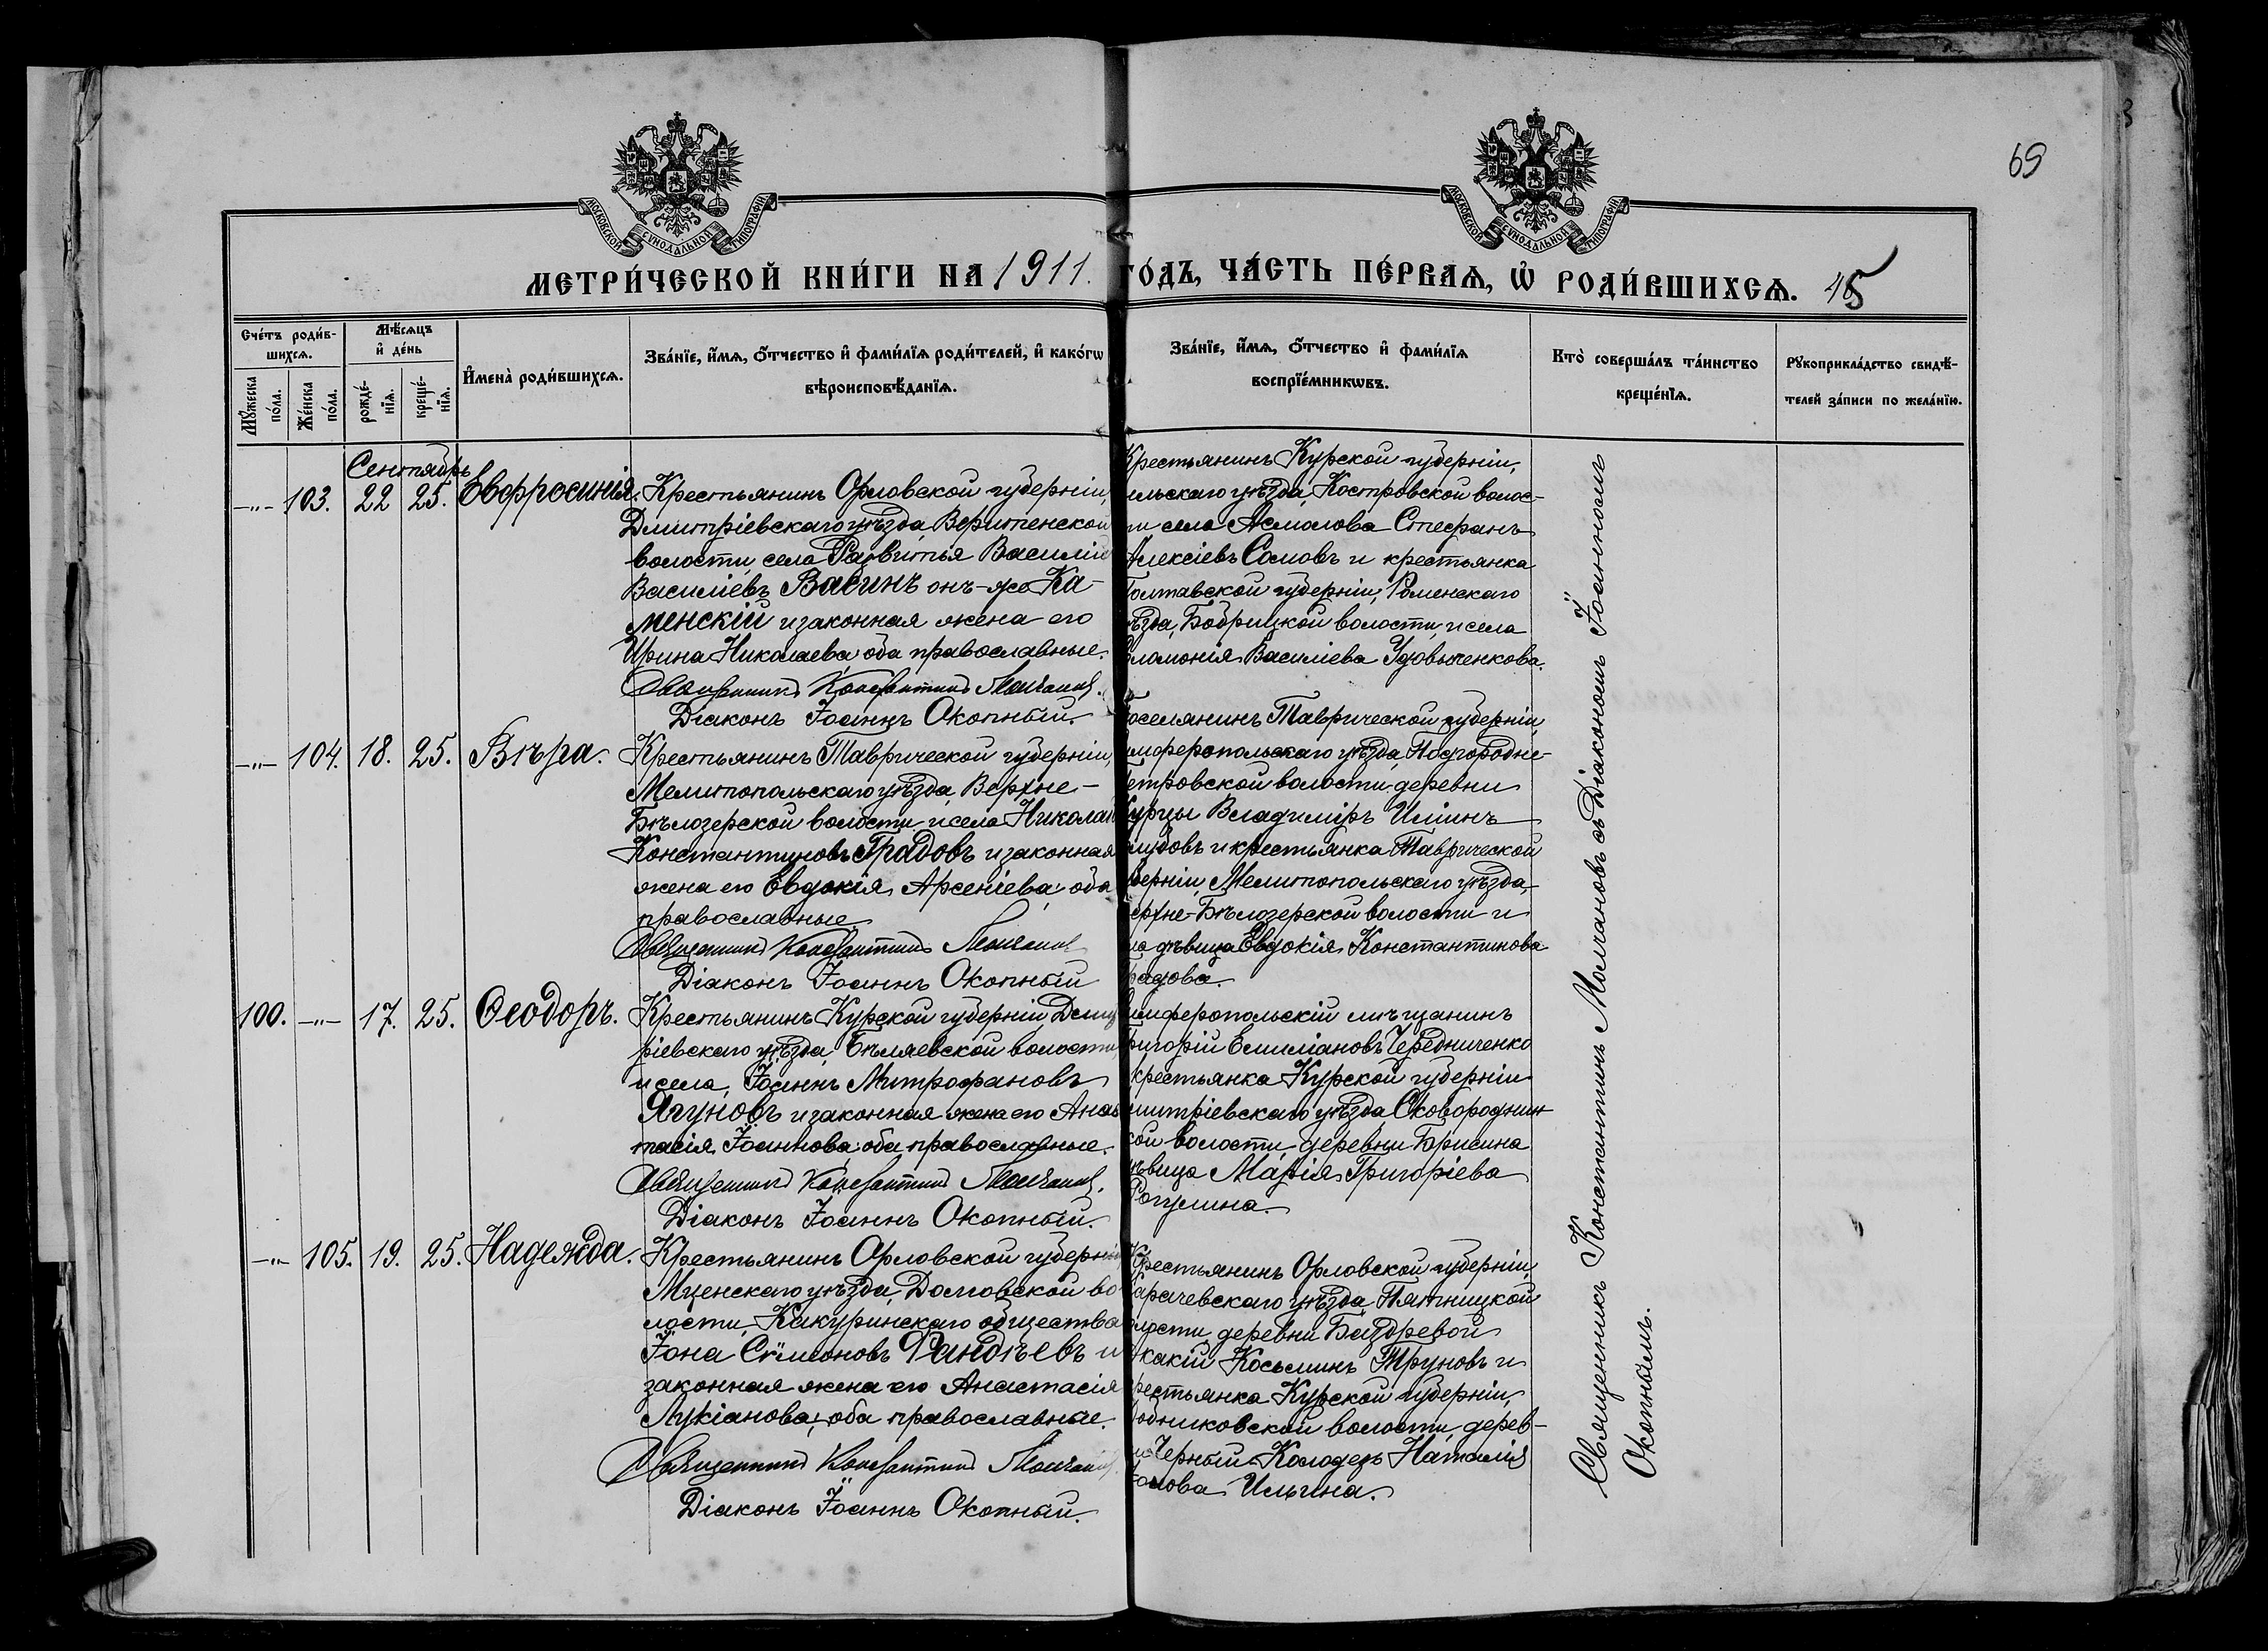 69
МОСКОВСКОЙ СѴНОДАЛЬНОЙ ТИПОГРАФІИ
МОСКОВСКОЙ СѴНОДАЛЬНОЙ ТИПОГРАФІИ
МЕТРИ́ЧЕСКОЙ КНИ́ГИ НА 1911. ГО́ДЪ, ЧА́СТЬ ПЕ́РВАѦ, Ѡ҆ РОДИ́ВШИХСѦ. 45
Сче́тъ роди́в-
шихсѧ.
Мꙋ́жеска по́ла.
Же́нска по́ла.
Мѣ́сѧцъ и҆ де́нь
рожде́-нїѧ.
креще́-нїѧ.
И҆мена̀ роди́вшихсѧ.
Зва́нїе, и҆́мѧ, ѻ҆́тчество и҆ фами́лїѧ роди́телей, и҆ како́гѡ
вѣроисповѣ́данїѧ.
Зва́нїе, и҆́мѧ, ѻ҆́тчество и҆ фами́лїѧ
воспрїе́мникѡвъ.
Кто̀ соверша́лъ та́инство
креще́нїѧ.
Рꙋкоприкла́дство свидѣ́-
телей за́писи по жела́нїю.
Сентябрь
-"- 103. 22 25. Евфросинія.
Крестьянинъ Орловской губерніи,
Дмитріевскаго уѣзда, Веритенской
волости, села Развитья Василій
Василіевъ Васинъ онъ-же Ка-
менскій и законная жена его
Ирина Николаева, оба православные.
Священникъ Константинъ Молчановъ.
Діаконъ Іоаннъ Окопный.
Крестьянинъ Курской губерніи,
льскаго уѣзда, Костровской волос-
ти села Асмолова Стефанъ
Алексіевъ Сомовъ и крестьянка
Полтавской губерніи, Роменскаго
уѣзда, Бобрицкой волости, и села
Соломонія Василіева Удовыченкова.
-"- 104. 18. 25. Вѣра.
Крестьянинъ Таврической губерніи,
Мелитопольскаго уѣзда, Верхне-
Бѣлозерской волости, и села Николай
Константиновъ Градовъ и законная
жена его Евдокія Арсеніева, оба
православные
Священникъ Константинъ Молчановъ
Діаконъ Іоаннъ Окопный
Поселянинъ Таврической губерніи,
Симферопольскаго уѣзда, Подгородне-
Петровской волости, деревни
Курцы Владиміръ Иліинъ
лубовъ и крестьянка Таврической
губерніи, Мелитопольскаго уѣзда,
Верхне-Бѣлозерской волости и
села дѣвица Евдокія Константинова
Градова.
100. -"- 17. 25. Ѳеодоръ.
Крестьянинъ Курской губерніи, Дмит
ріевскаго уѣзда, Бѣляевской волости,
и села, Іоаннъ Митрофановъ
Ягуновъ и законная жена его Анас
тасія Іоаннова, оба православные.
Священникъ Константинъ Молчановъ.
Діаконъ Іоаннъ Окопный.
Симферопольскій мѣщанинъ
Григорій Емиліановъ Чередниченко
крестьянка Курской губерніи
Дмитріевскаго уѣзда, Сковороднин
ской волости, деревни Брисина
дѣвица Марія Григоріева
Рогулина.
-"- 105. 19. 25. Надежда.
Крестьянинъ Орловской губерніи,
Мценскаго уѣзда, Долговской во
лости, Какуринскаго общества
Іона Сѷмеоновъ Фандѣевъ и
законная жена его Анастасія
Лукіанова, оба православные.
Священникъ Константинъ Молчановъ
Діаконъ Іоаннъ Окопный.
Крестьянинъ Орловской губерніи,
Карачевскаго уѣзда, Пятницкой
волости, деревни Баздревой
Акакій Косьминъ Труновъ и
крестьянка Курской губерніи,
волости, дерев-
ни Черный-Колодезь Наталія
Ильина.
Священникъ Константинъ Молчановъ съ Діакономъ Іоанномъ
Окопнымъ.